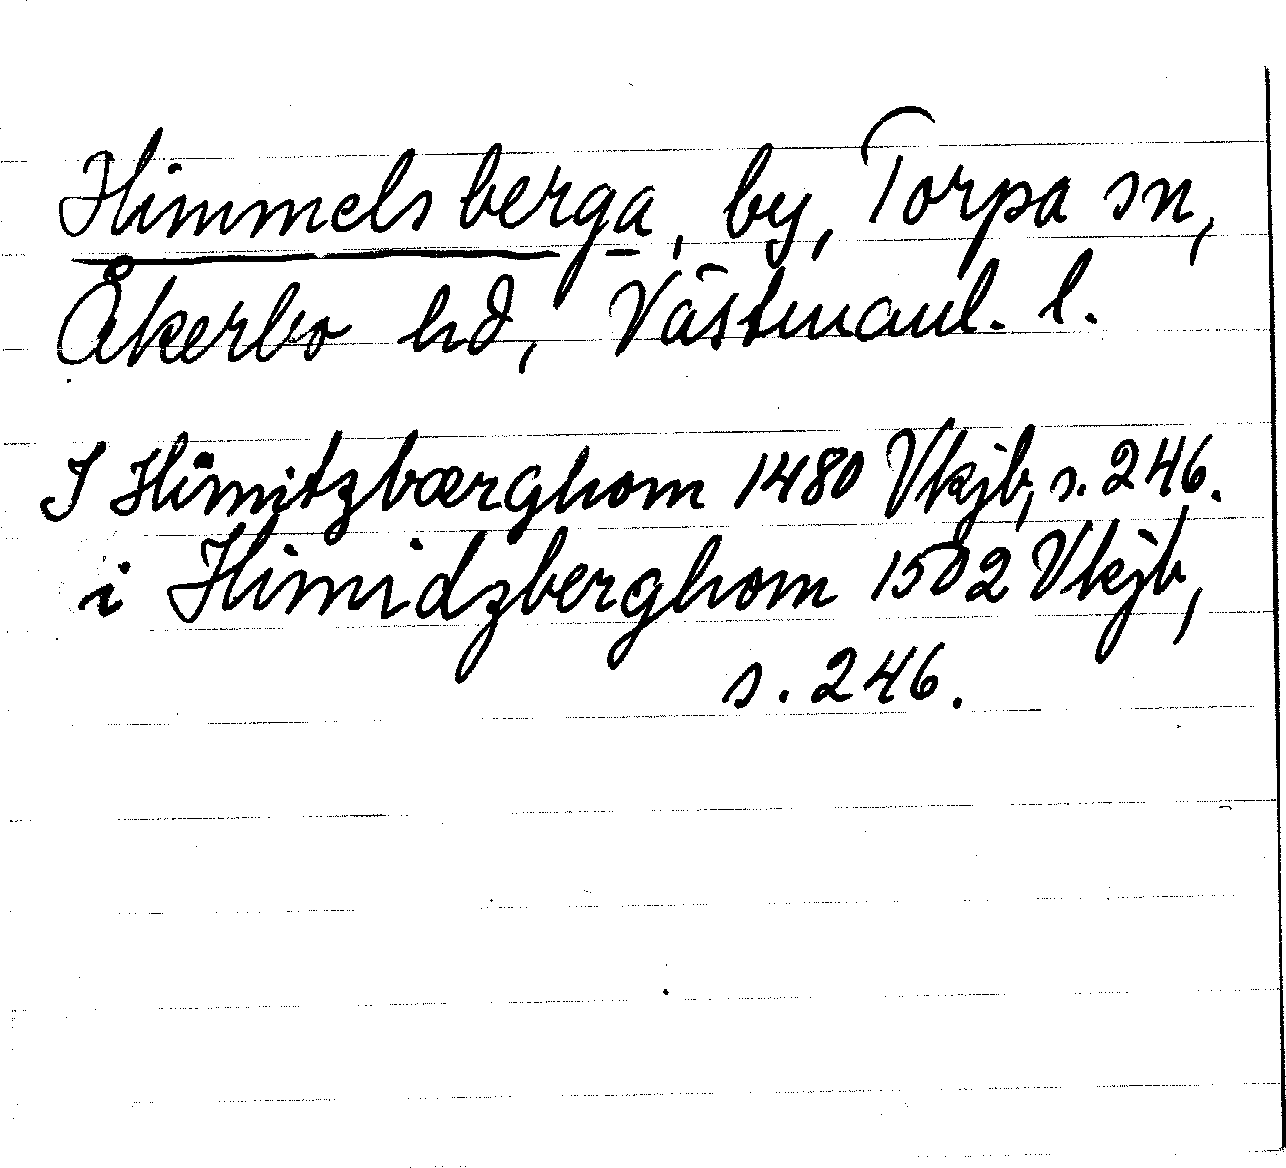 Himmelsberga, by, Torpa sn,
Åkerbo hd, Västmanl. l.
I Himitzbærghom 1480 Vkjb, s. 246.
i Himidzberghom 1502 Vkjb,
s. 246.